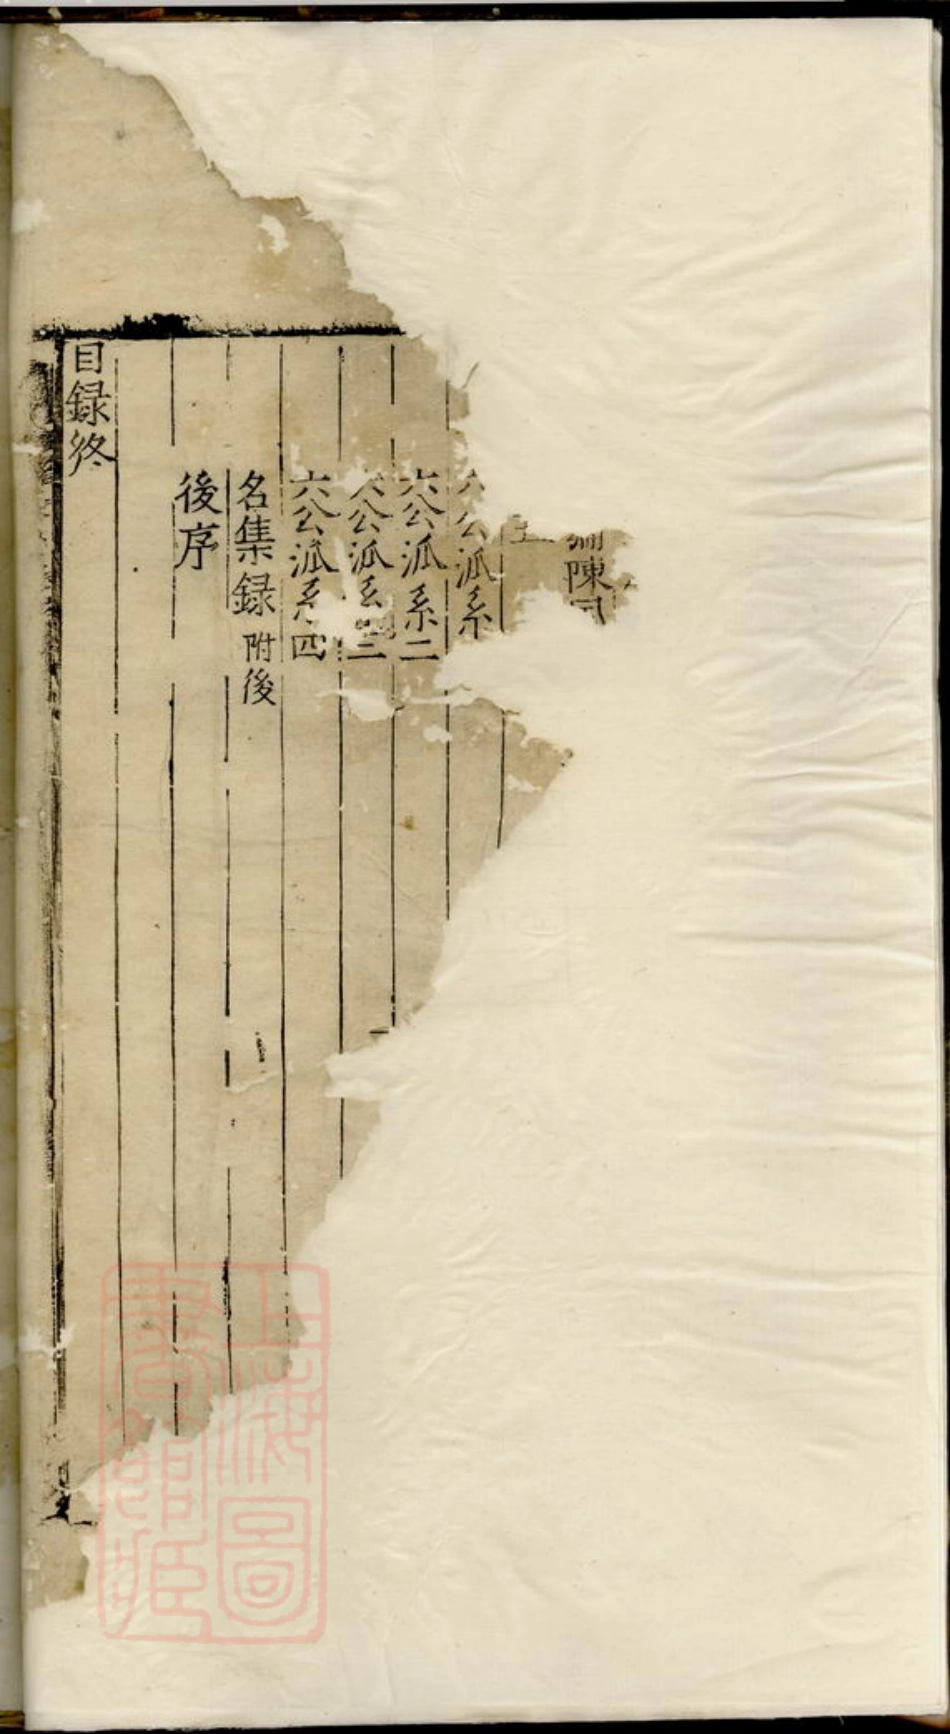 陳
六公派系
六公派系二
六公派系三
六公派系四
名集録 附後
後序
目録終
上海圖書館藏